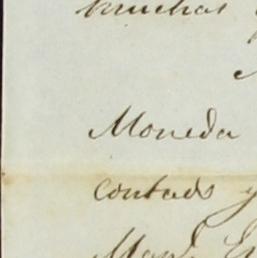 muchas
Moneda
contado y
Manl.